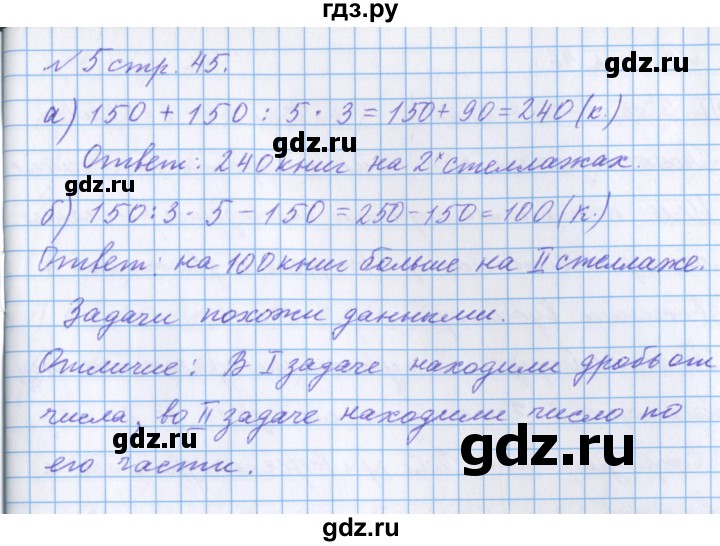 гдз.ру
№ 5 стр. 45.
gdz.ru
а) 150 + 150 : 5 · 3 = 150 + 90 = 240 (к.)
gdz.ru
Ответ: 240 книг на 2х стеллажах.
gdz.ru
gdz.ru
б) 150 : 3 · 5 - 150 = 250 - 150 = 100 (к.)
Ответ: на 100 книг больше на II стеллаже.
gdz.ru
Задачи похожи данными.
Отличие: В I задаче находили дробь от
gdz.ru
числа, во II задаче находили число по
gdz.ru
его части.
gdz.ru
gdz.ru